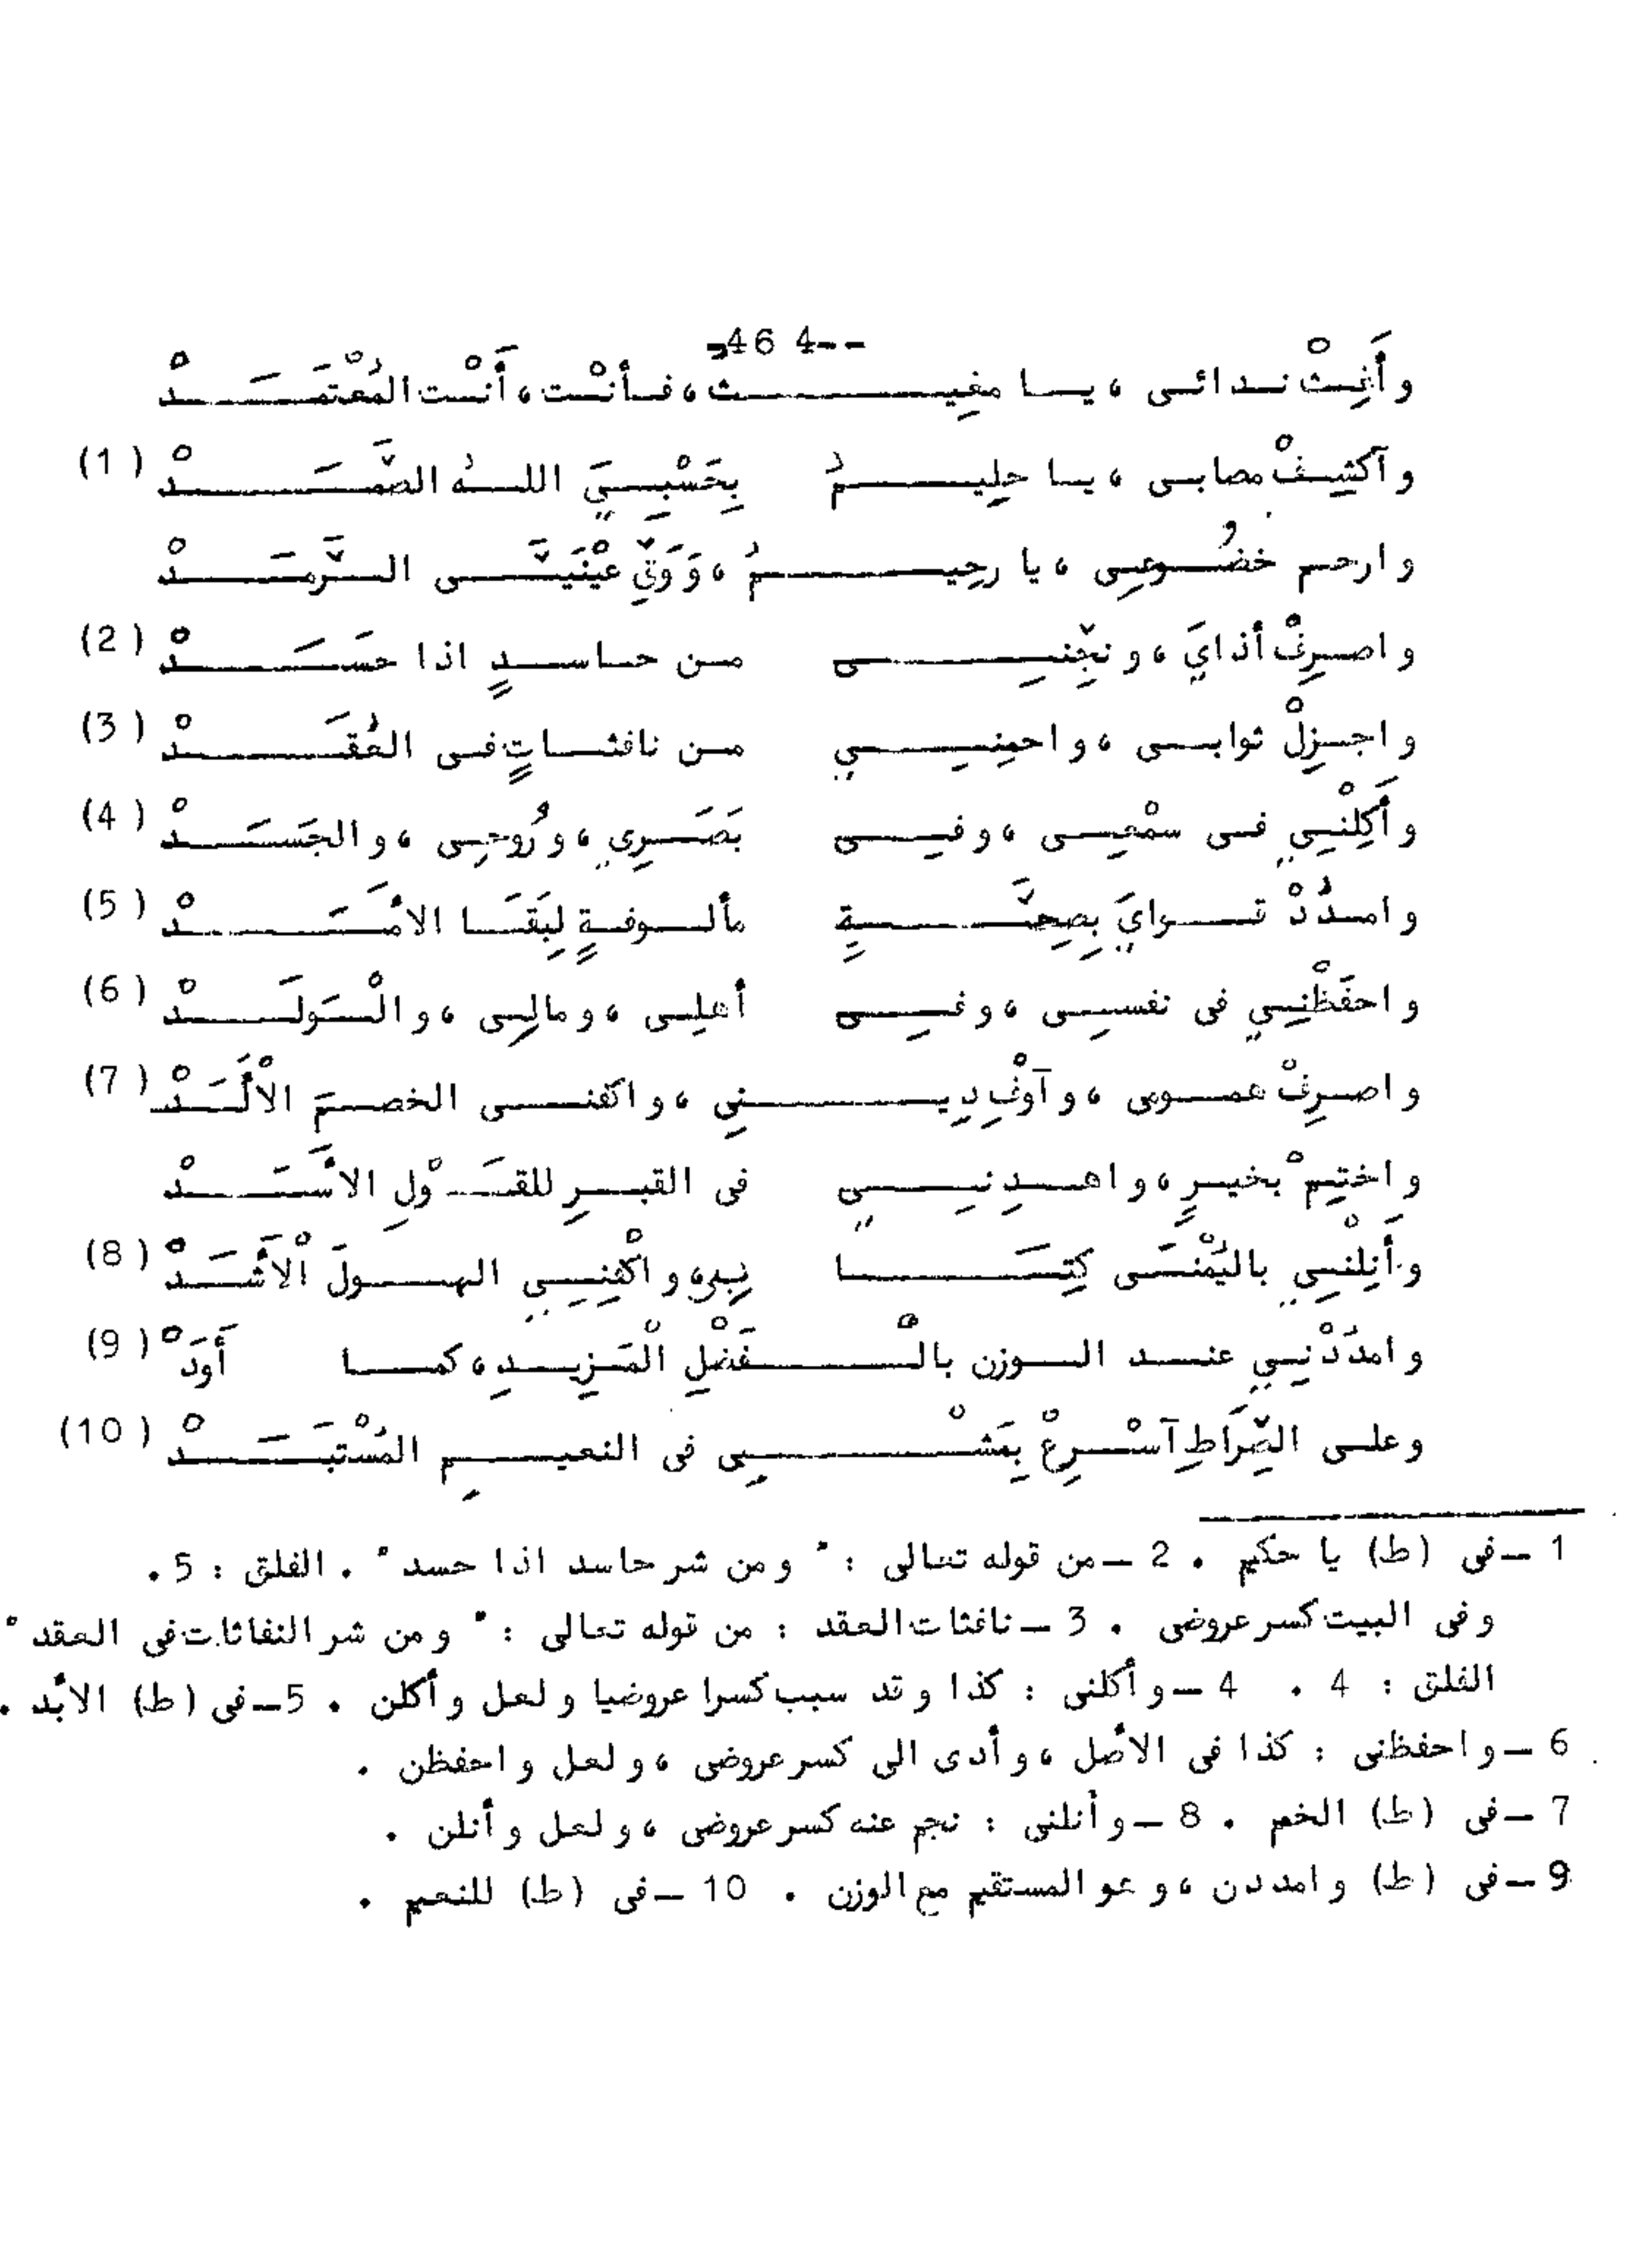 --464-
وأَغِثْ ندائى ، يا مغِيث ، فأنْت ، أَنْت المُعْتمَدْ
وآكشِفْ مصابى ، يا حلِيمُ بِحَسْبِيَ اللهُ الصَّمَدْ (1)
وارحم خضُوعِى ، يا رحِيمُ ، وَوَقِّ عيْنَيَّى الرَّمَدْ
واصرِفْ أذايَ ، ونجِّنِى من حاسدٍ اذا حَسَدْ (2)
واجزِلْ ثوابى ، واحمِنِي من نافثاتٍ فى العُقَدْ (3)
وأَكِلْنِي فى سمْعِى ، وفِى بَصَرِي ، ورُوحِى ، والجَسَدْ (4)
وامدُدْ قوايَ بِصِحَّةٍ مألوفةٍ لِبَقَا الأمَدْ (5)
واحفَظْنِي فى نفسِى ، وفِى أهلِى ، ومالِى ، والْوَلَدْ (6)
واصرِفْ همومى ، وآوْفِ دِينِى ، واكفنى الخصمَ الْأَلَدْ (7)
واختِمْ بخيرٍ ، واهدِنِي فى القبرِ للقَوْلِ الأسَدْ
وأَنِلْنِي باليُمْنَى كِتَا بِيِ ، واكْفِنِي الهولَ الْأَشَدْ (8)
وامدُدْنِي عند الوزن بالْفَضْلِ الْمَزِيدِ ، كما أَوَدْ (9)
وعلى الصِّرَاطِ آسْرِعْ بِمَشْيِى فى النعيمِ المُسْتبَدْ (10)
1 – فى (ط) يا حكيم . 2 – من قوله تعالى : " ومن شر حاسد اذا حسد " . الفلق : 5 .
وفى البيت كسر عروضى . 3 – نافثات العقد : من قوله تعالى : " ومن شر النفاثات فى العقد "
الفلق : 4 . 4 – وأكلنى : كذا وقد سبب كسرا عروضيا ولعل وأكلن . 5 – فى (ط) الأبد .
6 – واحفظنى : كذا فى الأصل ، وأدى الى كسر عروضى ، ولعل واحفظن .
7 – فى (ط) الخم . 8 – وأنلنى : نجم عنه كسر عروضى ، ولعل وأنلن .
9 – فى (ط) وامددن ، وهو المستقيم مع الوزن . 10 – فى (ط) للنعيم .